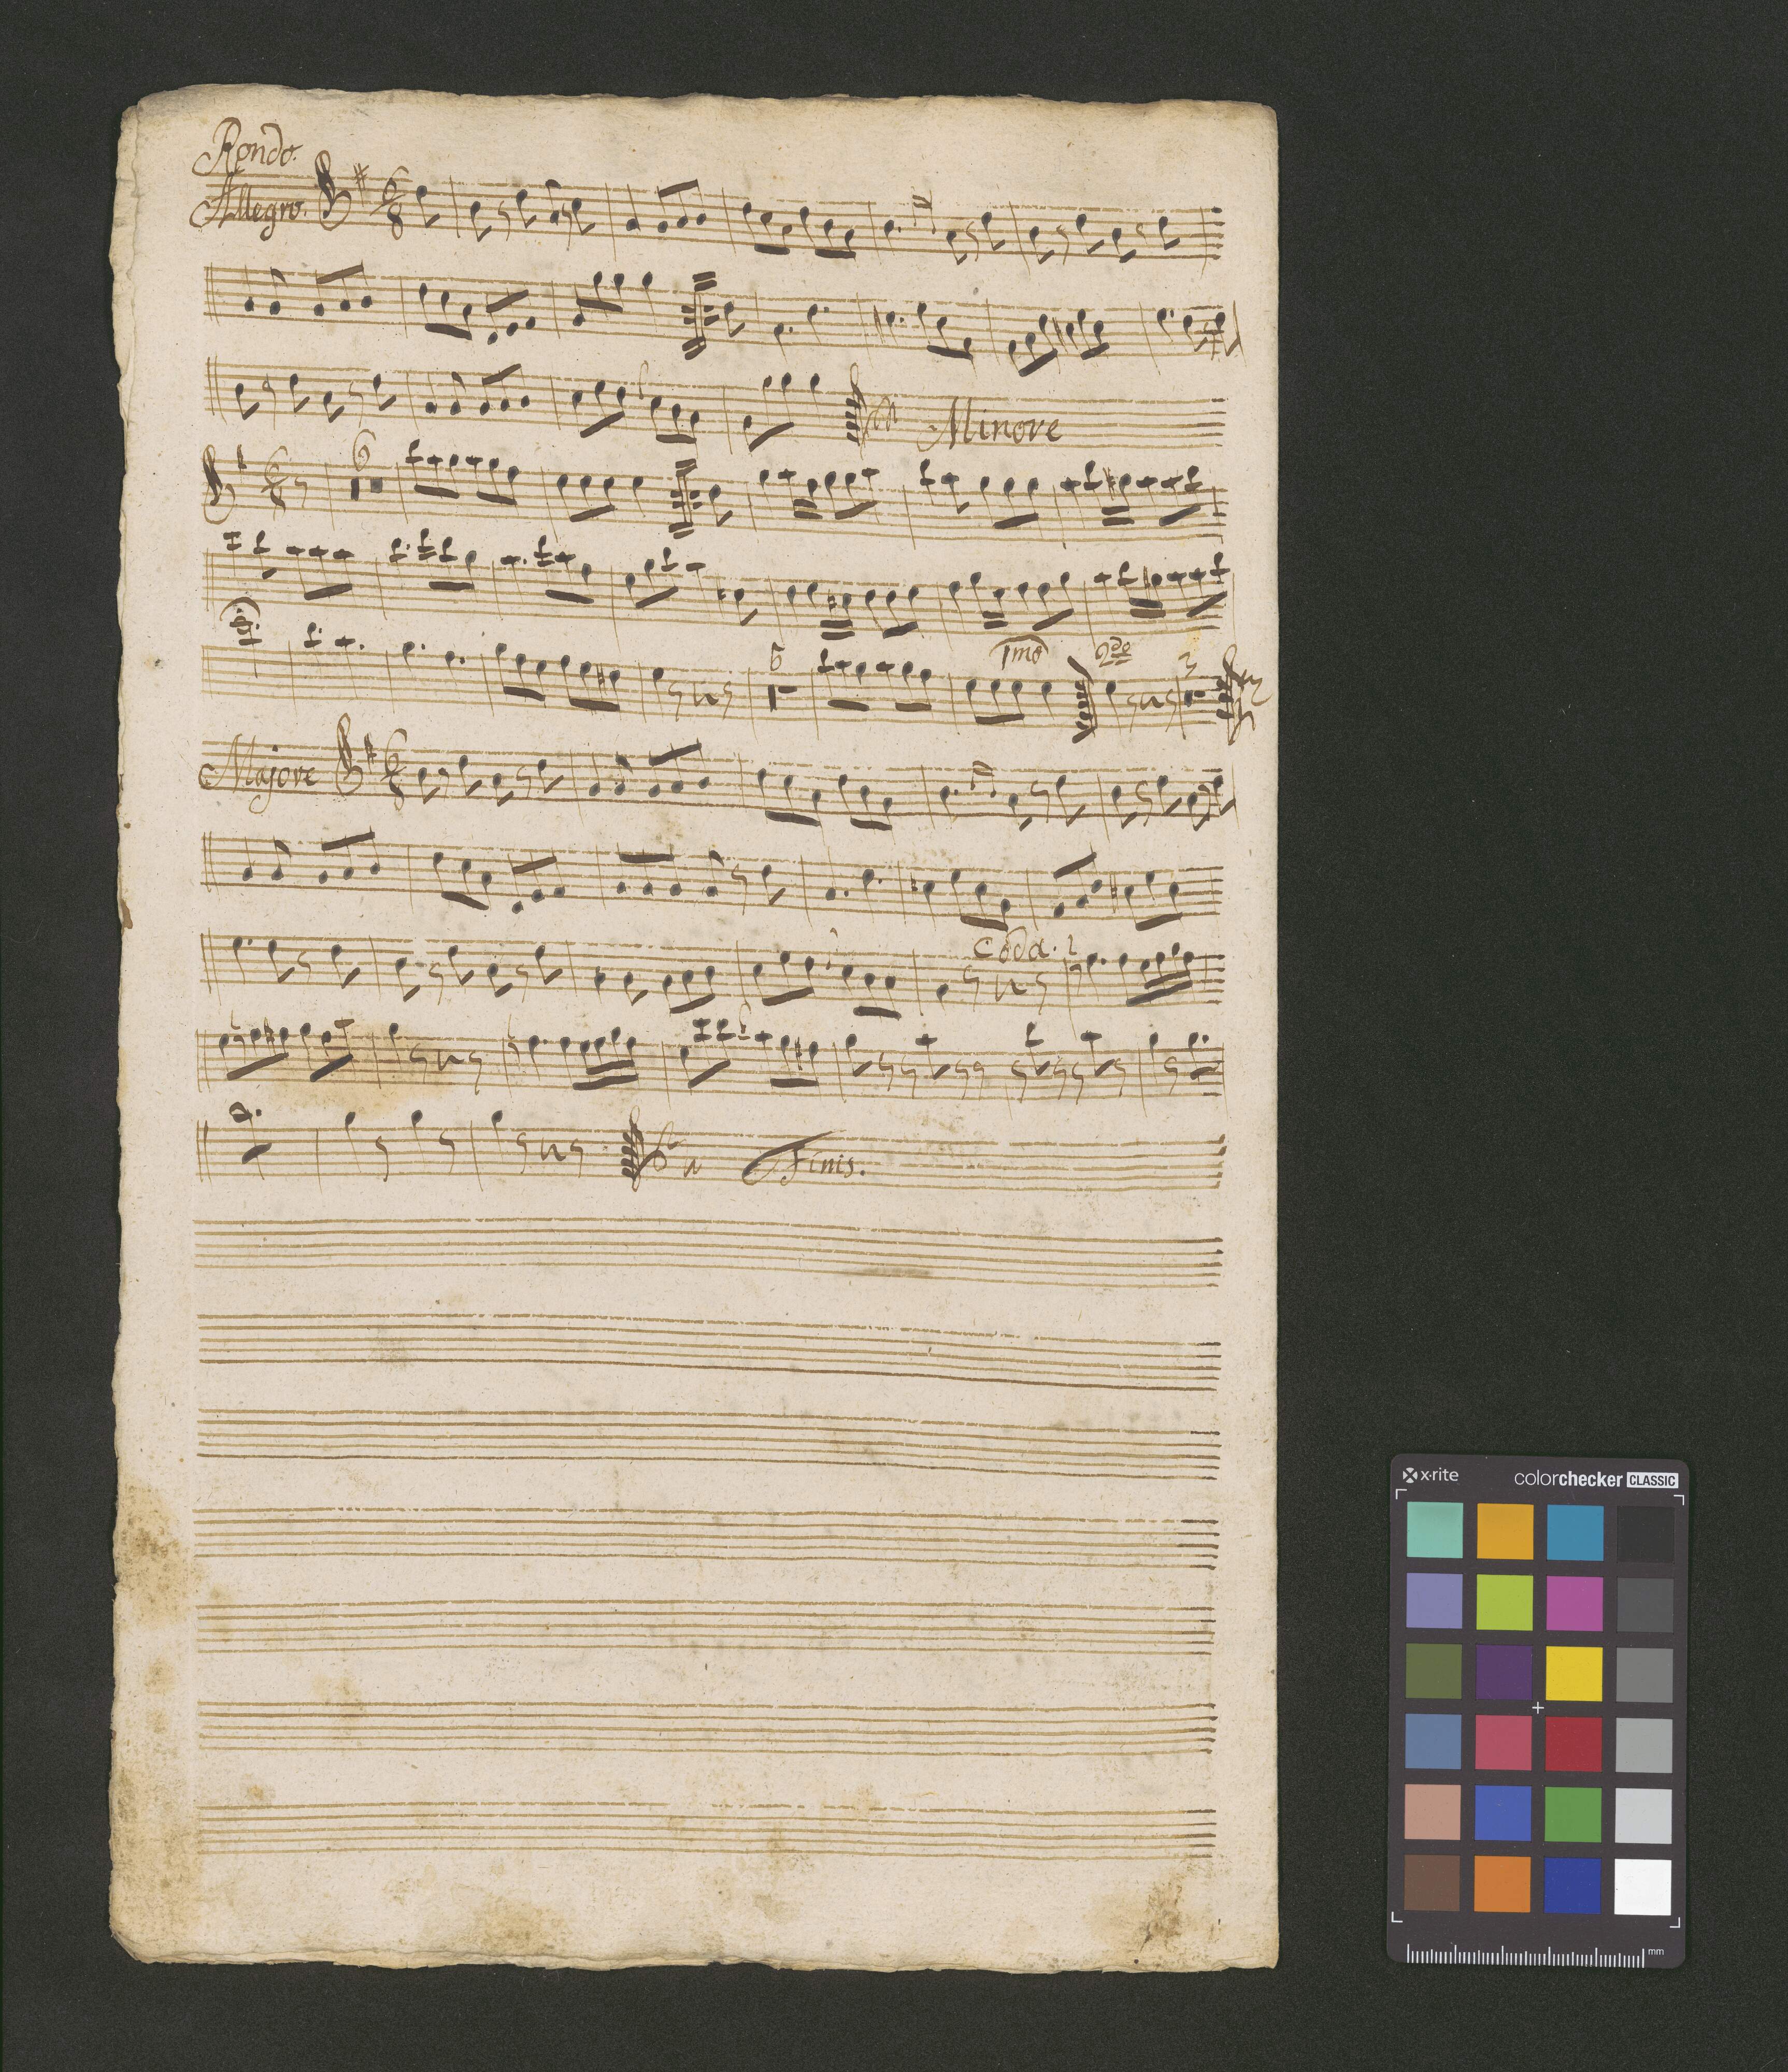 Rondo.
Allegro. 6/8
Minore
6/8 6
5 1mo 2do 3
Majore 6/8
Coda.
Finis.
x·rite colorchecker CLASSIC
mm